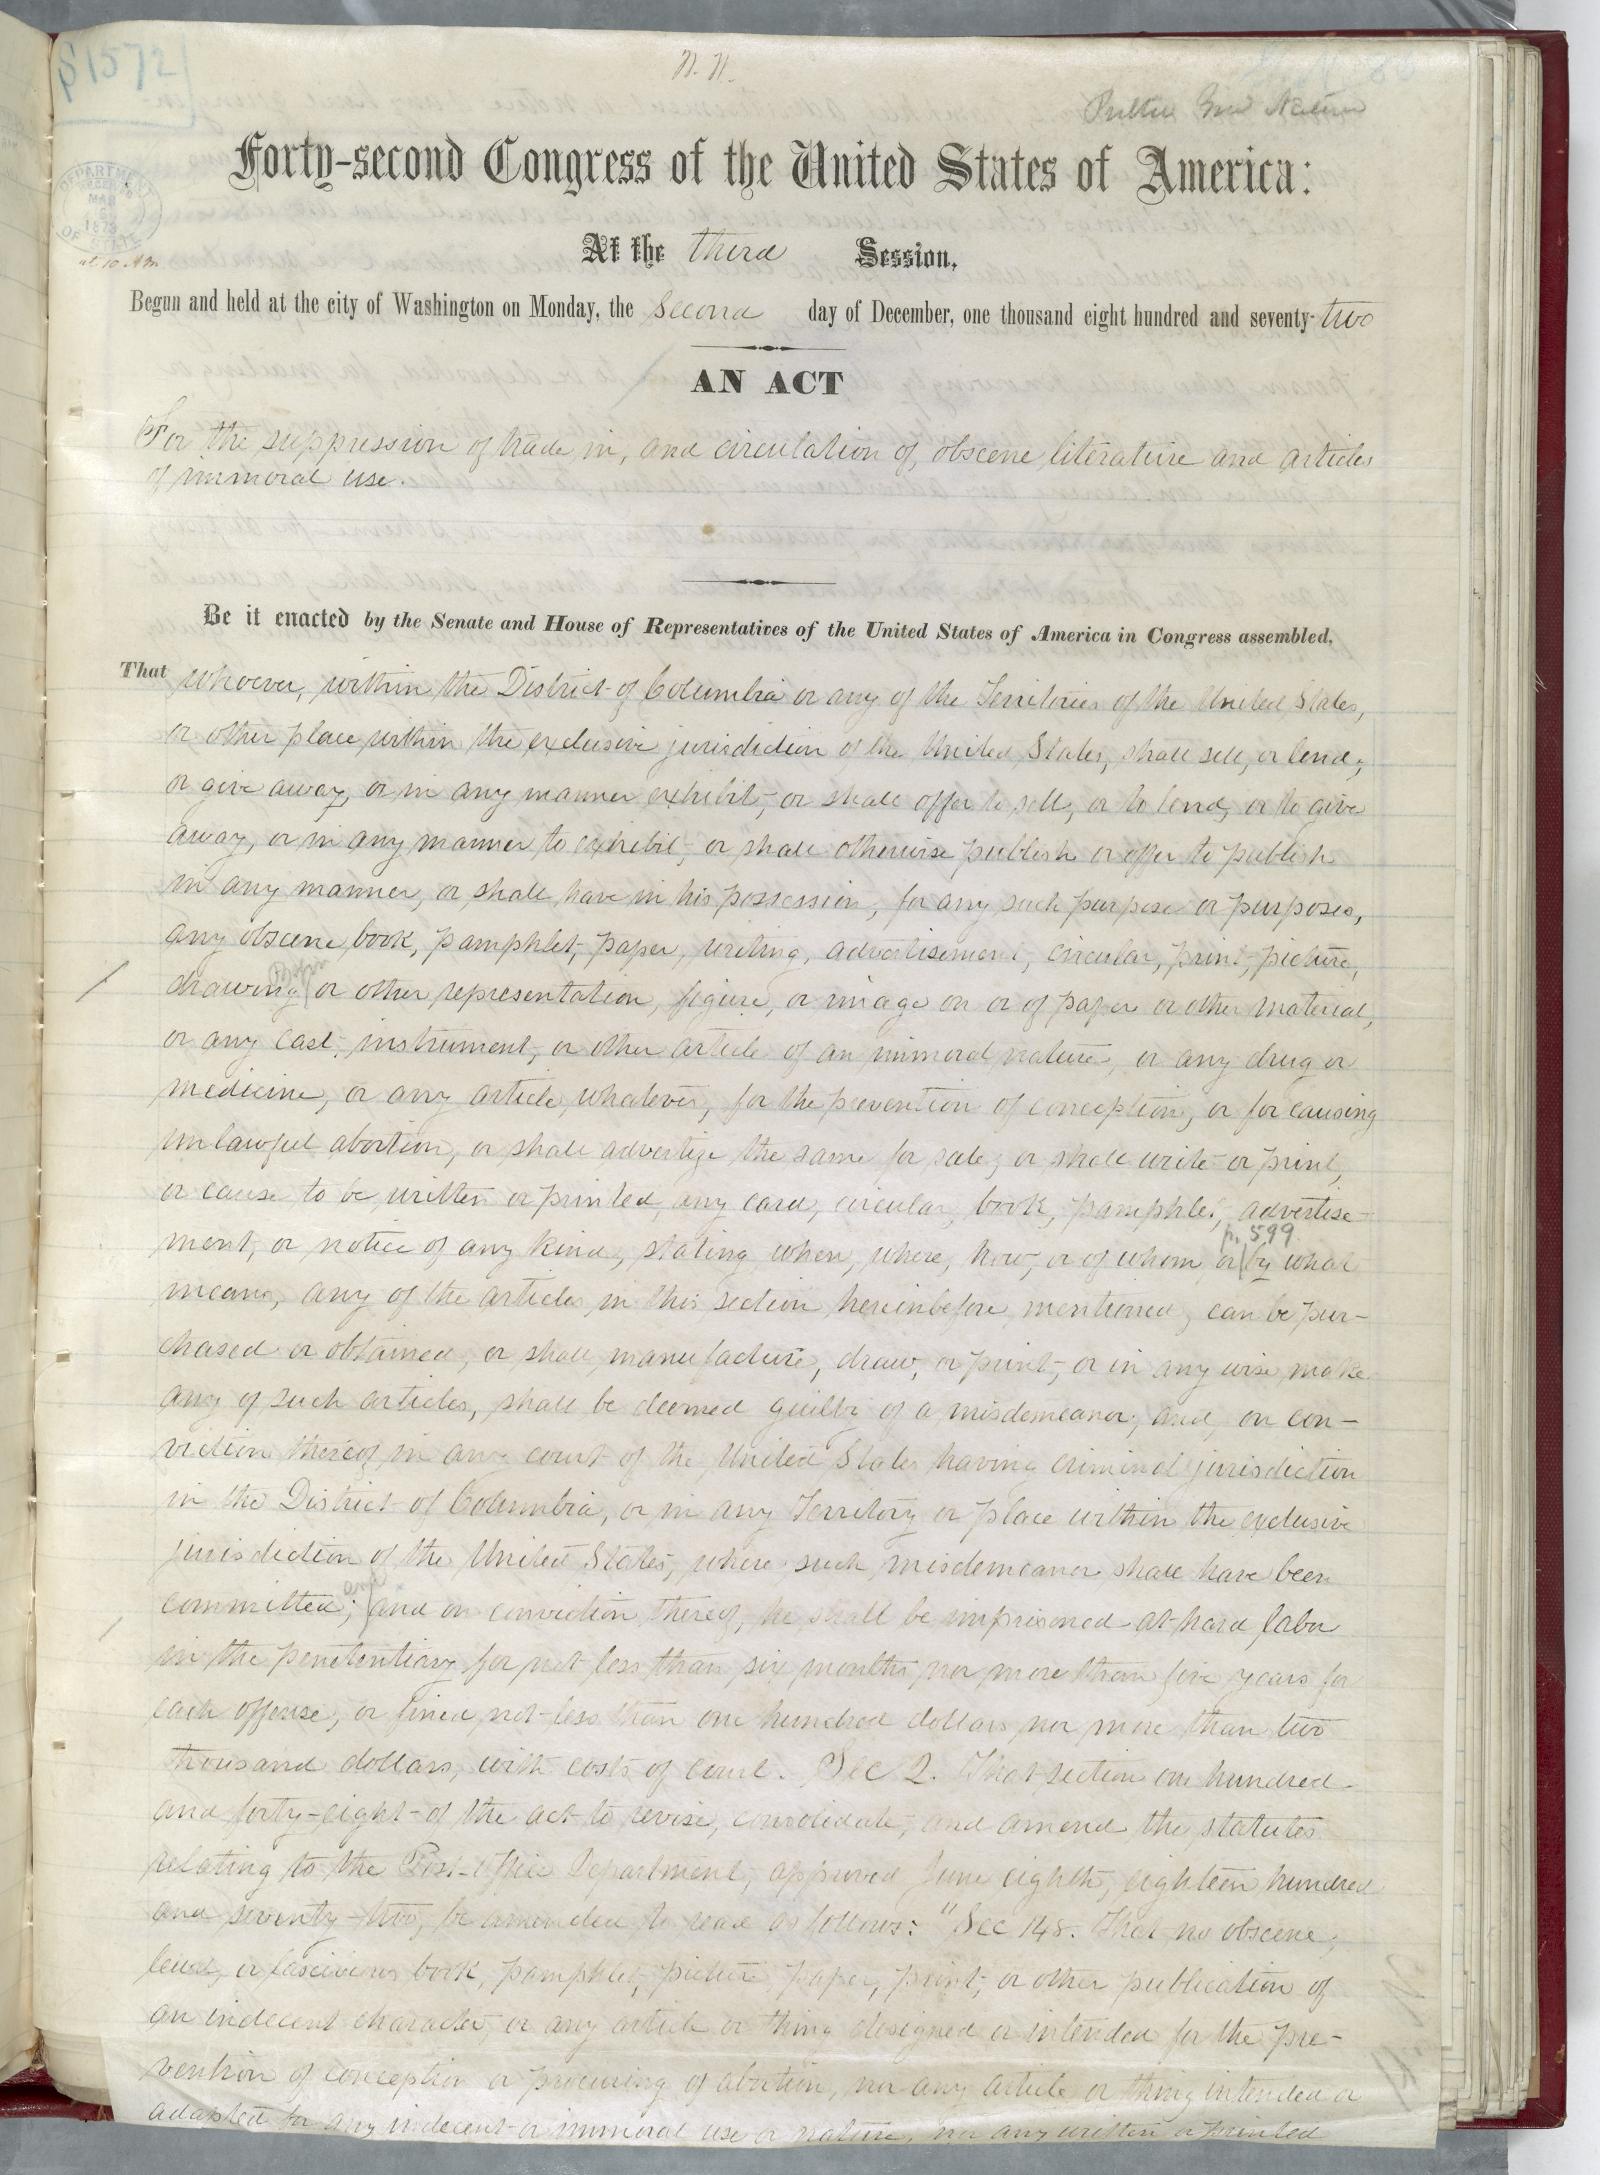 §1572
N. N.
Public Gen Nature
DEPARTMENT
MAR
1873
OF STATE
at 10 AM
Forty-second Congress of the United States of America:
At the third Session,
Begun and held at the city of Washington on Monday, the second day of December, one thousand eight hundred and seventy-two
AN ACT
For the suppression of trade in, and circulation of, obscene literature and articles
of immoral use.
Be it enacted by the Senate and House of Representatives of the United States of America in Congress assembled,
That whoever, within the District of Columbia or any of the Territories of the United States,
or other place within the exclusive jurisdiction of the United States, shall sell, or lend,
or give away, or in any manner exhibit, or shall offer to sell, or to lend, or to give
away, or in any manner to exhibit, or shall otherwise publish or offer to publish
in any manner, or shall have in his possession, for any such purpose or purposes,
any obscene book, pamphlet, paper, writing, advertisement, circular, print, picture,
drawing or other representation, figure, or image on or of paper or other material,
or any cast, instrument, or other article of an immoral nature, or any drug or
medicine, or any article whatever, for the prevention of conception, or for causing
unlawful abortion, or shall advertize the same for sale, or shall write or print,
or cause to be written or printed, any card, circular, book, pamphlet, advertise-
p. 599
ment, or notice of any kind, stating when, where, how, or of whom, or by what
means, any of the articles in this section hereinbefore mentioned, can be pur-
chased or obtained, or shall manufacture, draw, or print, or in any wise make
any of such articles, shall be deemed guilty of a misdemeanor, and, on con-
viction thereof in any court of the United States having criminal jurisdiction
in the District of Columbia, or in any Territory or place within the exclusive
jurisdiction of the United States, where such misdemeanor shall have been
committed; and on conviction thereof, he shall be imprisoned at hard labor
in the penitentiary for not less than six months nor more than five years for
each offense, or fined not less than one hundred dollars nor more than two
thousand dollars, with costs of court. Sec 2. That section one hundred
and forty-eight of the act to revise, consolidate, and amend the statutes
relating to the Post-office Department, approved June eighth, eighteen hundred
and seventy-two, be amended to read as follows: "Sec 148. That no obscene,
lewd, or lascivious book, pamphlet, picture, paper, print, or other publication of
an indecent character, or any article or thing designed or intended for the pre-
vention of conception or procuring of abortion, nor any article or thing intended or
adapted for any indecent or immoral use or nature, nor any written or printed